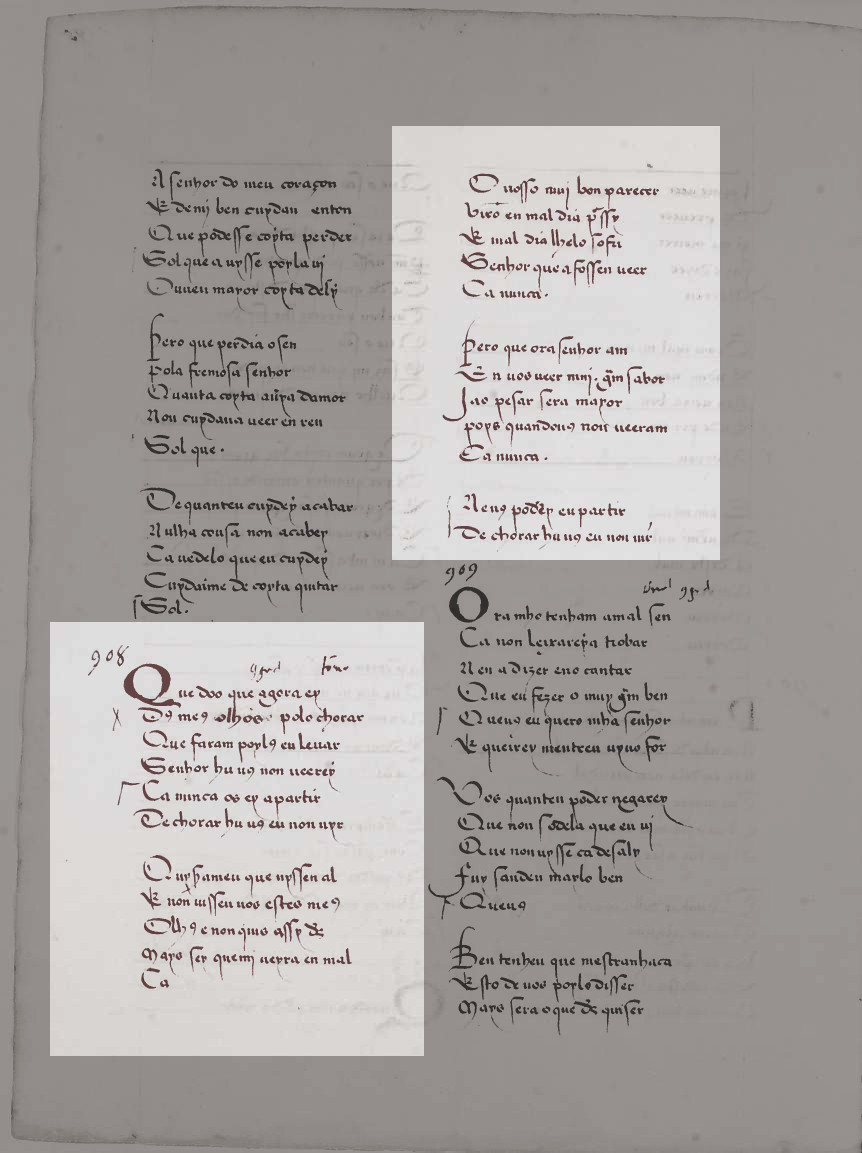 A senhor do meu coraçon
E demj ben cuydau enton
Que podesse coyta perder
Sol que a uysse poyla uj
Ouueu mayor coyta dely
Pero que perdia o sen
pola fremosa senhor
Quanta coyta auya damor
Non cuydaua ueer en ren
Sol que.
De quanteu cuydey acabar
Nulha cousa non acabey
Ca uedelo que eu cuydey
Cuydaime de coyta quitar
Sol.
908
Que doo que agora ey
D9 me9 olhos polo chorar
Que faram poyl9 eu leuar
Senhor hu u9 non ueerey
Ca nunca os ey a partir
De chorar hu u9 eu non uyr
E non uissen uos estes me9
Olh9 e non quis assy de9
Mays ser quemj ueyra en mal
Ca
O uosso muj bon parecer
Viron en mal dia
E mal dia lhelo sofri
Senhor que a fossen ueer
Ca nunca.
Pero que ora senhor am
En uos ueer muj. gram sabor
Jao pesar sera mayor
poys quandou9 non ueeram
Ca nunca.
Neu9 poderey eu partir
De chorar hu u9 eu non uir
909
Ora mho tenham a mal sen
Ca non leixareya trobar
Nen a dizer eno cantar
Que eu fezer o muy gram ben
Queu9 eu quero mha senhor
E queirey mentreu uyuo for
Vos quanteu poder negarey
Que non sodela que eu uj
Que non uysse ca desaly
Fuy sandeu maylo ben
Queu9
Ben tenheu que mestranhaca
Esto de uos poylo disser
Mays sera o que de9 quiser